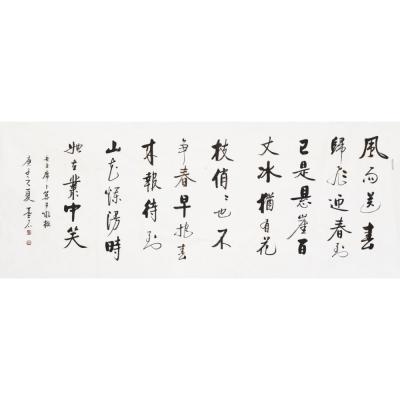 風雨送春
歸飛迎春到
已是懸崖百
丈冰猶有花
枝俏々也不
爭春早把春
來報待到
山花爛漫時
她在叢中笑
毛主席卜算子咏梅
庚子夏